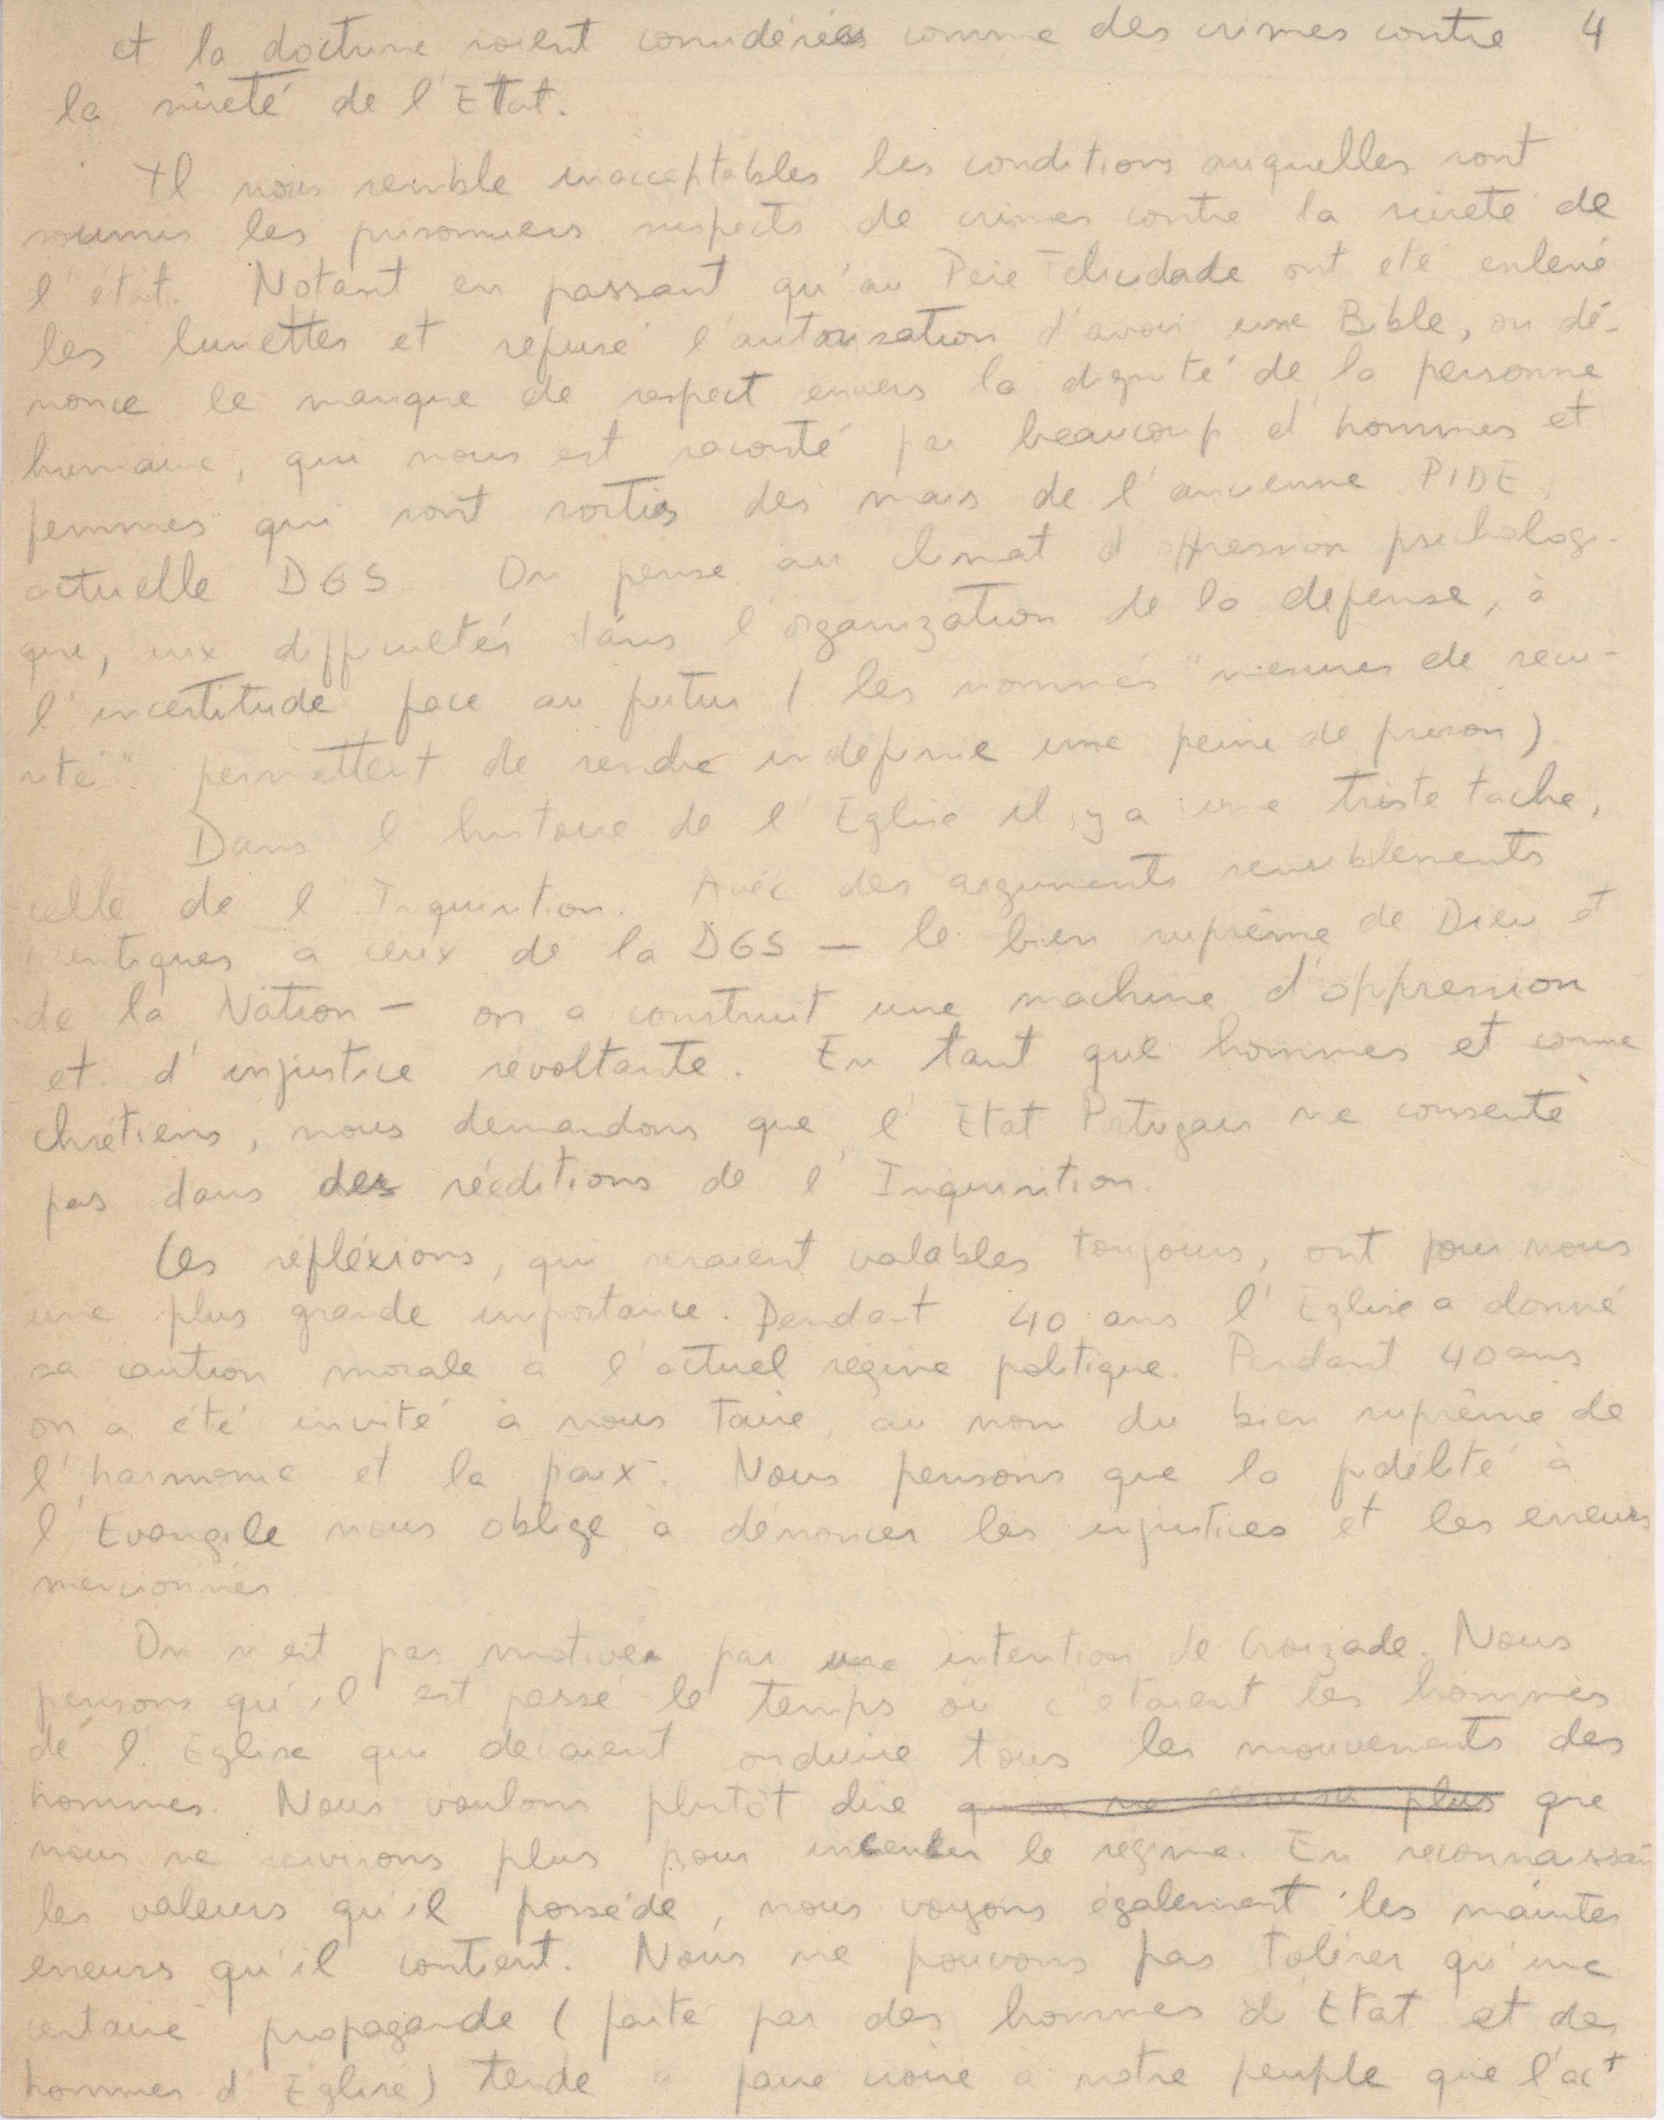 et la doctrine soient considérées comme des crimes contre 4
la sûreté de l'Etat.
Il nous semble inacceptables les conditions auquelles sont
soumis les prisonniers suspects de crimes contre la sûreté de
l'état. Notant en passant qu'au Père Felicidade ont été enlevé
les lunettes et refusé l'autorisation d'avoir une Bible, on dé-
nonce le manque de respect envers la dignité de la personne
humaine, qui nous est raconté par beaucoup d'hommes et
femmes qui sont sorties des mais de l'ancienne PIDE,
actuelle DGS. On pense au climat d'oppression psicholog-
que, aux difficultés dans l'organization de la defense, à
l'incertitude face au futur (les nommés "mesures de secu-
rité" permettent de rendre indefinie une peine de prison)
Dans l'histoire de l'Eglise il y a une triste tache,
celle de l'Inquisition. Avec des arguments sensiblements
identiques a ceux de la DGS — le bien suprême de Dieu et
de la Nation — on a construit une machine d'oppression
et d'injustice revoltante. En tant que hommes et comme
chrétiens, nous demandons que l'Etat Portugais ne consente
pas dans des rééditions de l'Inquisition.
Ces réfléxions, qui seraient valables toujours, ont pour nous
une plus grande importance. Pendant 40 ans l'Eglise a donné
sa caution morale a l'actuel régime politique. Pendant 40 ans
on a été invité à nous taire, au nom du bien suprême de
l'harmonie et la paix. Nous pensons que la fidélité à
l'Evangile nous oblige à dénoncer les injustices et les erreurs
mencionnés.
On n'est pas motivés par une intention de Croizade. Nous
pensons qu'il est passé le temps où c'étaient les hommes
de l'Eglise qui devaient onduire tous les mouvements des
hommes. Nous voulons plutôt dire qu'on ne servira plus que
nous ne servirons plus pour le régime. En reconnaissant
les valeurs qu'il possède, nous voyons également les maintes
erreurs qu'il contient. Nous ne pouvons pas tolérer qu'une
certaine propagande (faite par des hommes d'Etat et des
hommes d'Eglise) tende a faire croire à notre peuple que l'act